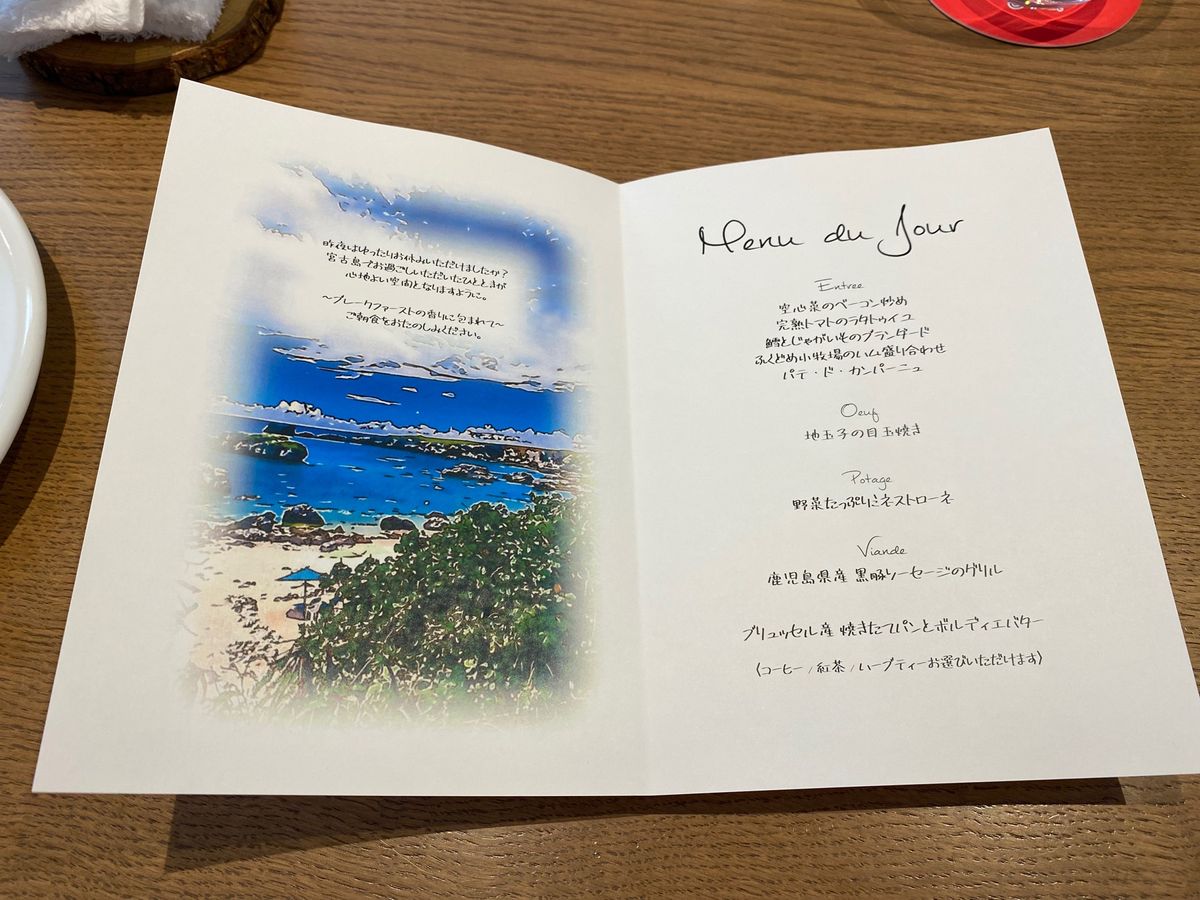 昨夜はゆったりお休みいただけましたか?
宮古島でお過ごしいただいたひとときが
心地よい空間となりますように。
〜ブレークファーストの香りに包まれて〜
ご朝食をおたのしみください。
Menu du Jour
Entree
空心菜のベーコン炒め
完熟トマトのラタトゥイユ
鱈とじゃがいものブランダード
ふくどめ小牧場のハム盛り合わせ
パテ・ド・カンパーニュ
Oeuf
地玉子の目玉焼き
Potage
野菜たっぷりミネストローネ
Viande
鹿児島県産 黒豚ソーセージのグリル
ブリュッセル産 焼きたてパンとボルディエバター
(コーヒー / 紅茶 / ハーブティーお選びいただけます)